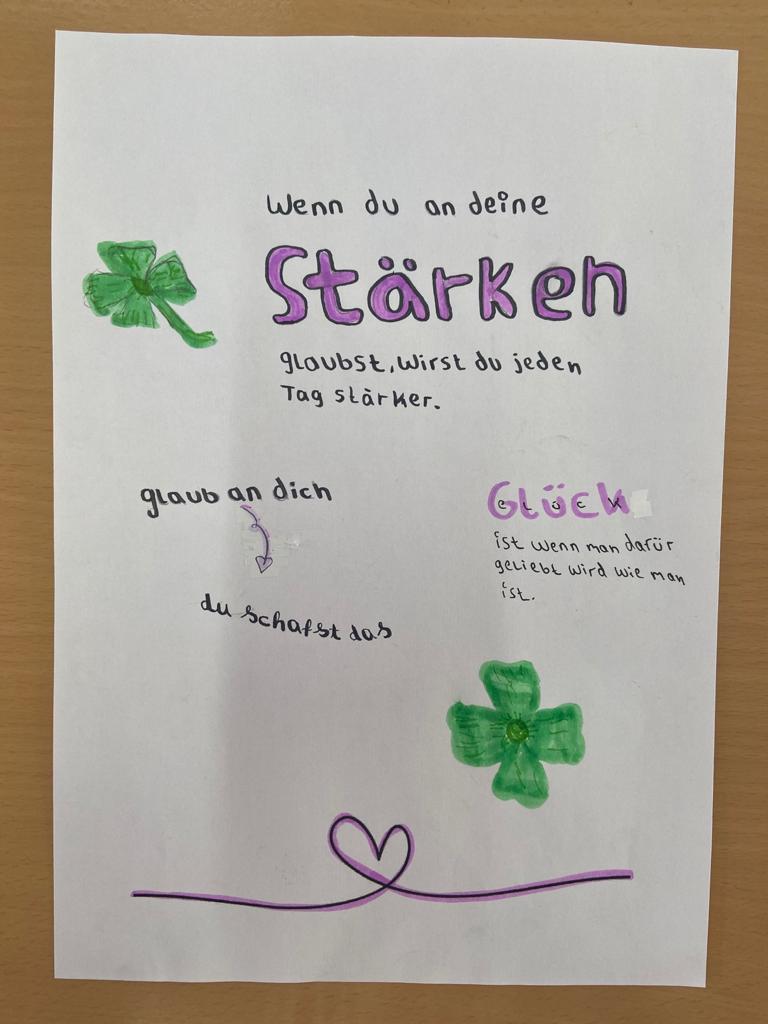 Wenn du an deine
Stärken
glaubst, wirst du jeden
Tag stärker.
glaub an dich
du schafst das
Glück
ist wenn man dafür
geliebt wird wie man
ist.